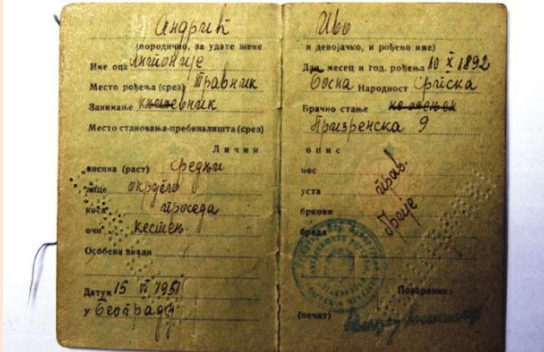 Андрић
(породично, за удате жене
Име оца Антоније
Место рођења (срез) Травник
Занимање књижевник
Место становања-пребивалишта (срез)
Лични
висина (раст) средњи
лице округло
коса проседа
очи кестен.
Особени знаци
Датум 15 VI 1951
у Београду
Иво
и девојачко, и рођено име)
Дан, месец и год. рођења 10 X 1892
Босна Народност Српска
Брачно стање неожењен
Призренска 9
опис
нос прав.
уста
бркови брије
брада
(печат)